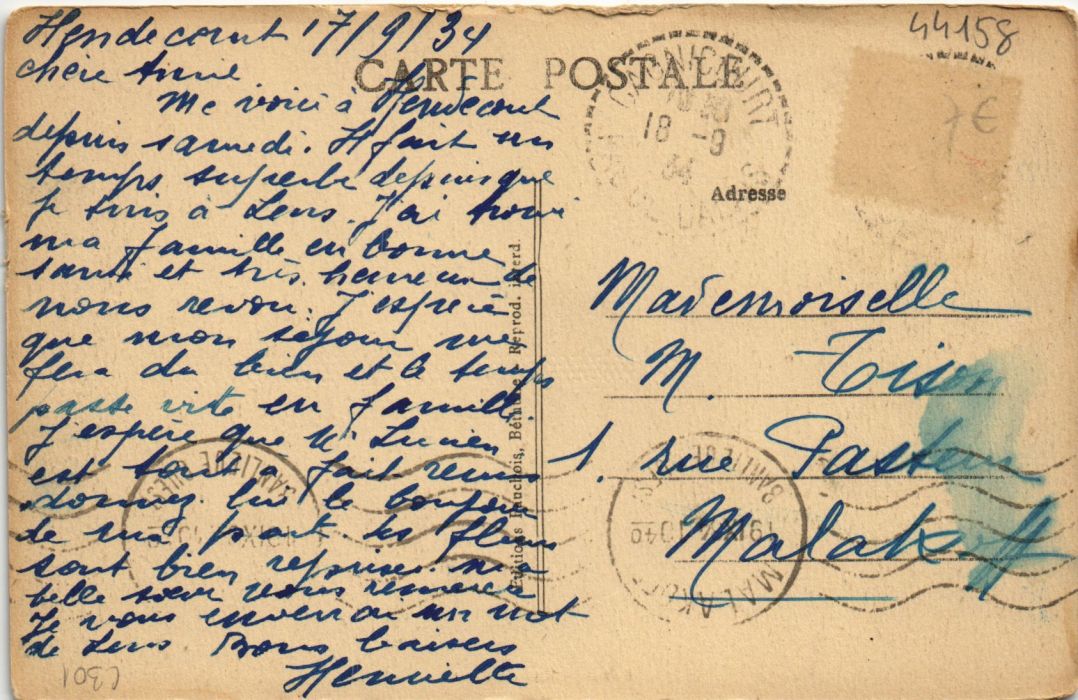 Hendecourt 17/9/34
chère Annie
Me voici à Hendecourt
depuis samedi. Il fait un
temps superbe depuis que
je suis à Lens. J'ai trouvé
ma famille en bonne
santé et très heureux de
nous revoir. J'espère
que mon séjour me
fera du bien et le temps
passe vite en famille.
J'espère que Mr Lucien
est tout à fait remis
donnez lui le bonjour
de ma part. les fleurs
sont bien reprises ma
belle sœur vous remercie
Je vous enverrai un mot
de Lens Bons baisers
Henriette
CARTE POSTALE
44158
7€
18 -9
34
Adresse
Mademoiselle
M. Tison
1 rue Pasteur
Malakoff
Editions Bauchois, Béthune Reprod. interd.
MALAKOFF
BANLIEUE
BANLIEUE
C301